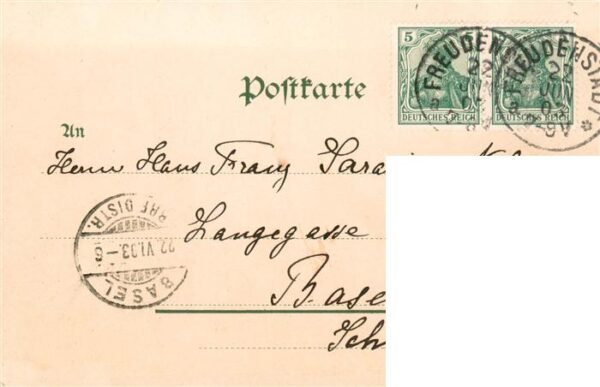 5
DEUTSCHES REICH DEUTSCHES REICH
FREUDENS
FREUDENSTADT *
Postkarte
An
Herrn Hans Franz Sara
Langegasse
Base
Sch
BASEL
22.VI.03.-6
BRF. DISTR.